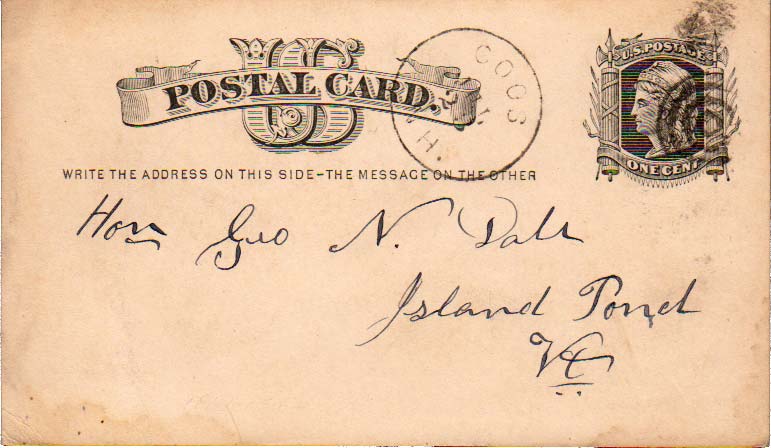 US
POSTAL CARD.
COOS
N.H.
U.S. POSTAGE
ONE CENT
WRITE THE ADDRESS ON THIS SIDE-THE MESSAGE ON THE OTHER
Hon Geo N. Dale
Island Pond
Vt